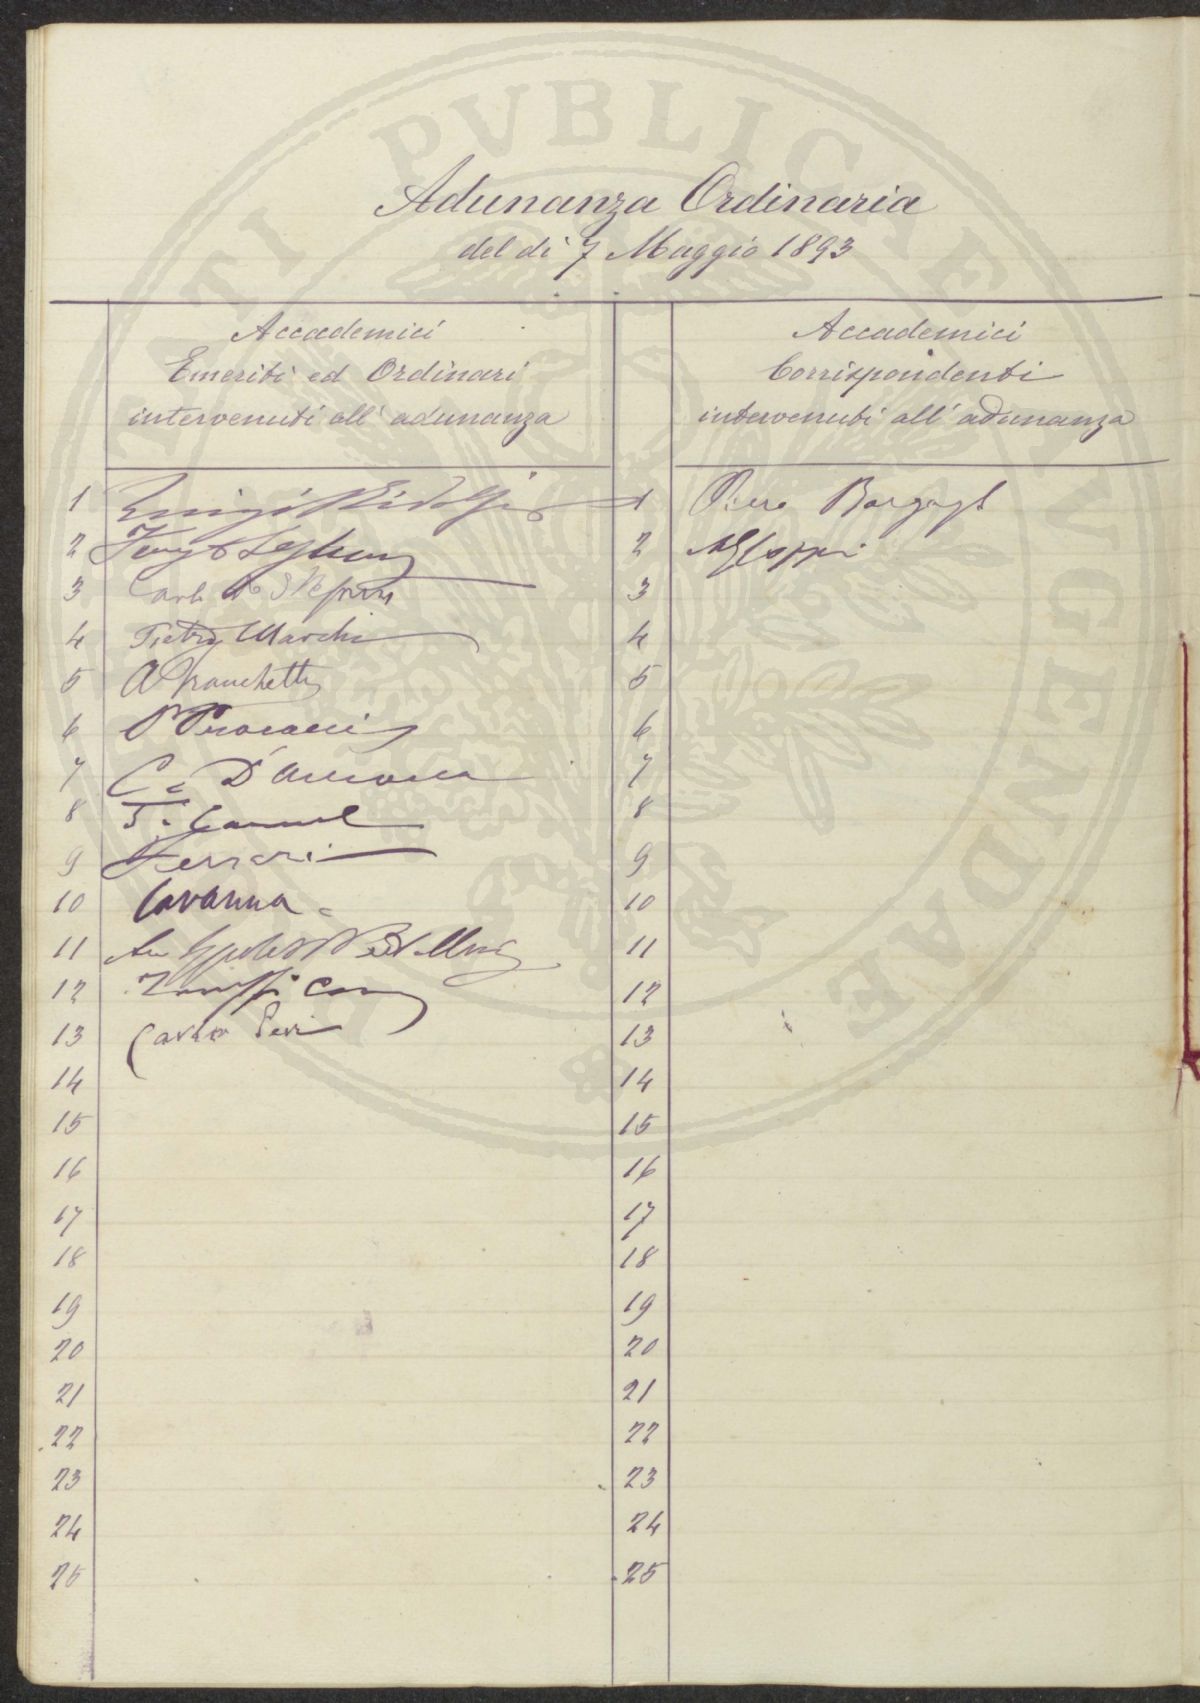 PVBLICAE
Adunanza Ordinaria
del dì 7 Maggio 1893
Accademici
Emeriti ed Ordinari
intervenuti all'adunanza
Accademici
Corrispondenti
intervenuti all'adunanza
1 Luigi Ridolfi
1 Piero Bargagli
2
2
3 Carlo De Stefani
3
4 Pietro Marchi
4
5 A Franchetti
5
6 P Procacci
6
7 C. D'Ancona
7
8
8
9 Ferrari
9
10 Cavanna
10
11
11
12
12
13 Carlo Pevi
13
14
14
15
15
16
16
17
17
18
18
19
19
20
20
21
21
22
22
23
23
24
24
25
25